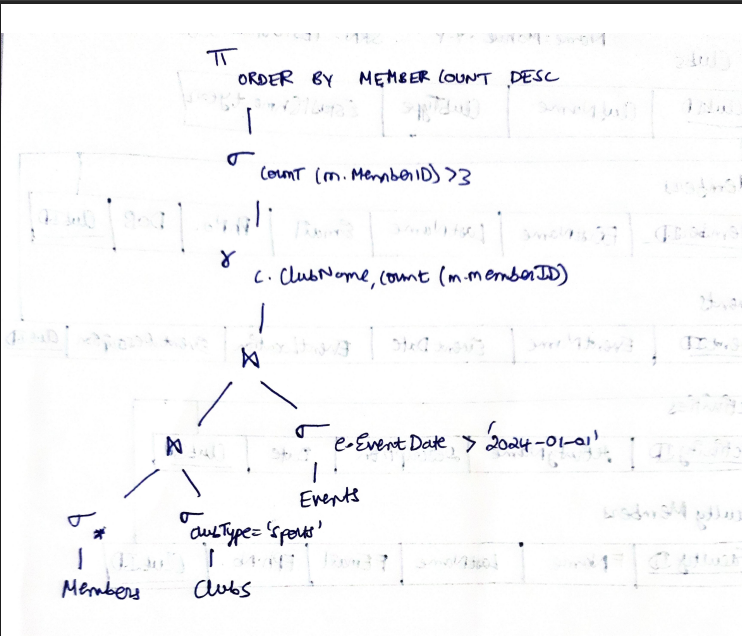 π
ORDER BY MEMBER COUNT DESC
σ
count (m.MemberID) >3
γ
c. ClubName, count (m.memberID)
⋈
⋈
σ e.EventDate > '2024-01-01'
Events
σ *
σ clubType = 'sports'
Members
Clubs